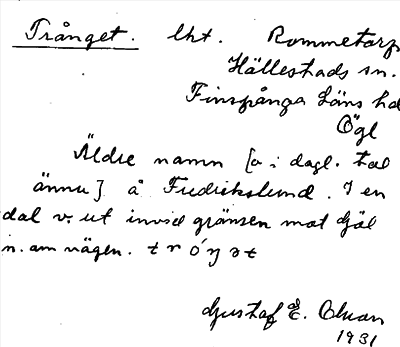 Trånget. lht. Rommetorp
Hällestads sn.
Finspånga Läns hd
Ögl
Äldre namn [o. i dagl. tal
ännu] å Fredrikslund. I en
dal v. ut invid gränsen mot Gjäl
n. om vägen. t r ó ŋ ə t
Gustaf E.
1931